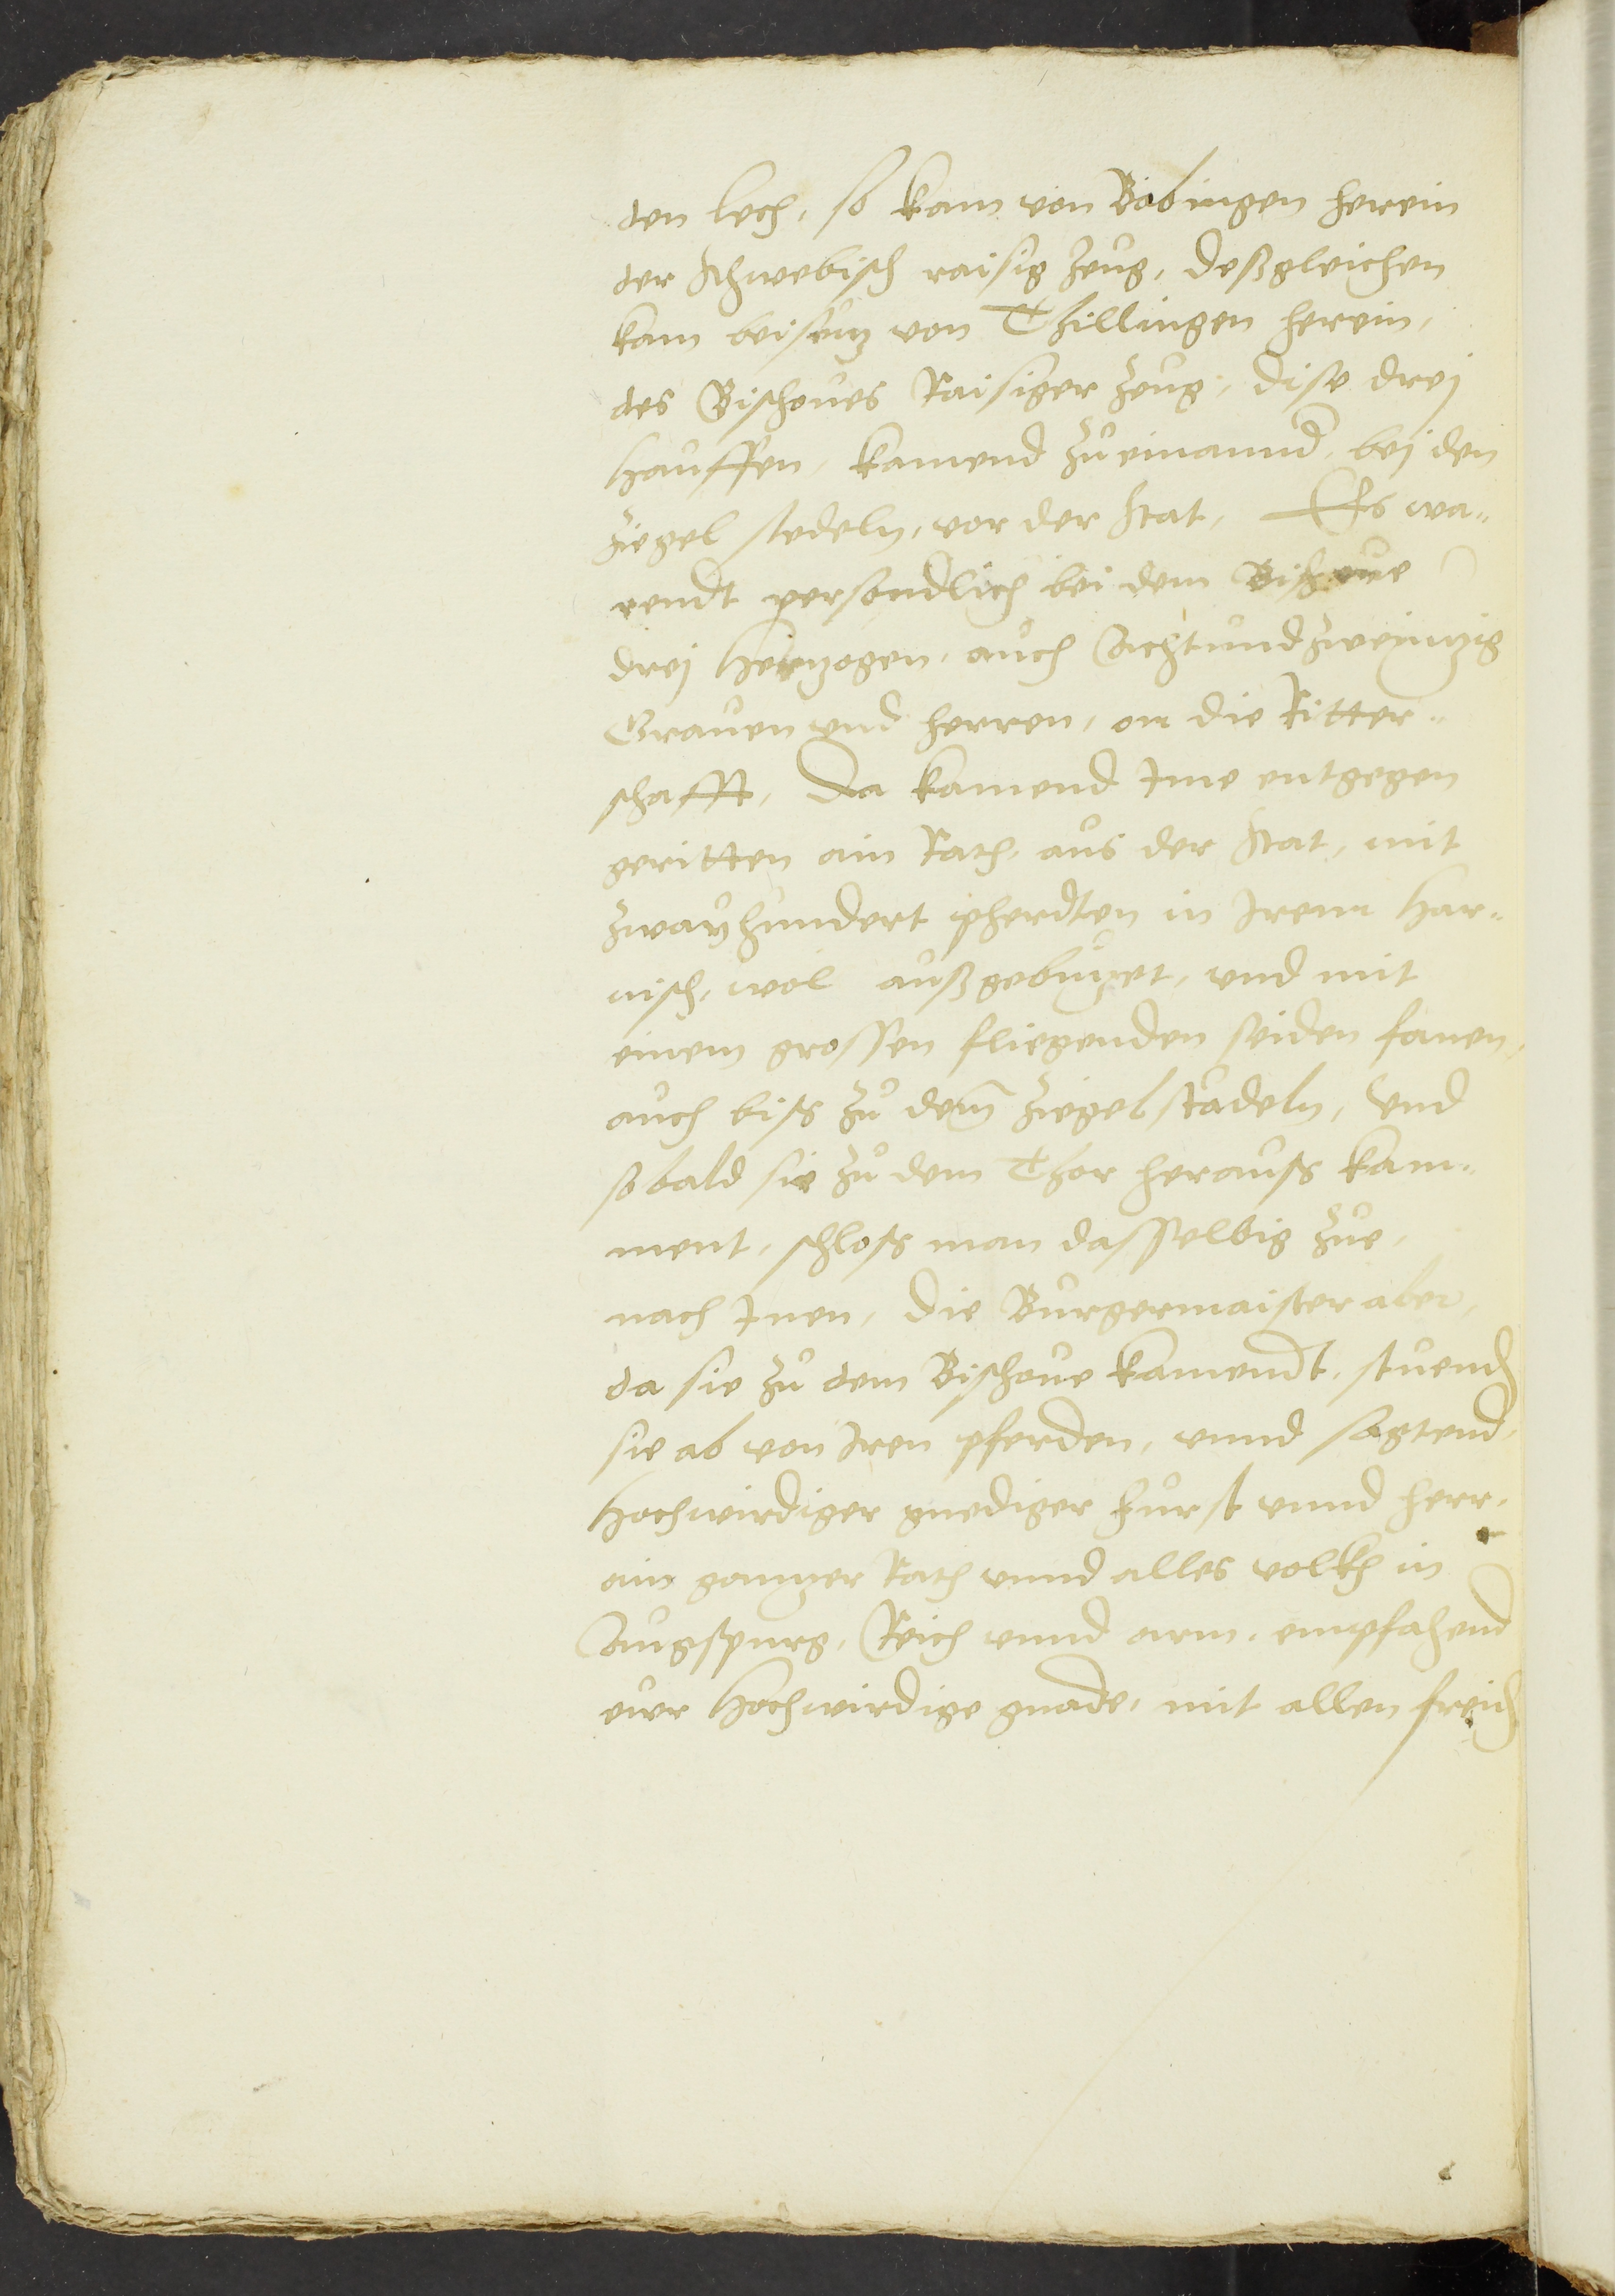 den lech, so kam von Bobingen herein
der schwebisch raisig zeug, deßgleichen
kam beiseitz von Thillingen herein,
des Bischoues Raisiger zeug, dise drej
hauffen, kamend zů einannd, bej den
ziegel stedeln, vor der stat, Es wa„
rendt persondlich bei dem Bischoue
drej hertzogen, auch Achtundzweintzig
Grauen vnd herren, on die Ritter„
schafft, Da kamend Ime entgegen
geritten ain Rath, aus der stat, mit
zwayhundert pherdten in Irem Har„
nisch, wol außgebutzet, vnd mit
einem grossen fliegenden seiden fanen,
auch biß zů dem ziegel städeln, Vnd
so bald sie zů dem Thor herauß kam„
ment, schloß man dasselbig zue,
nach Inen, die Burgermaister aber,
da sie zů dem Bischoue kamendt, stuend
sie ab von Iren pferden, vnnd sagtend,
Hochwirdiger gnediger fürst vnnd herr,
ain gantzer Rath vnnd alles volkh in
Augspurg, Reich vnnd arm, empfahend
ewr Hochwirdige gnade, mit allen freid